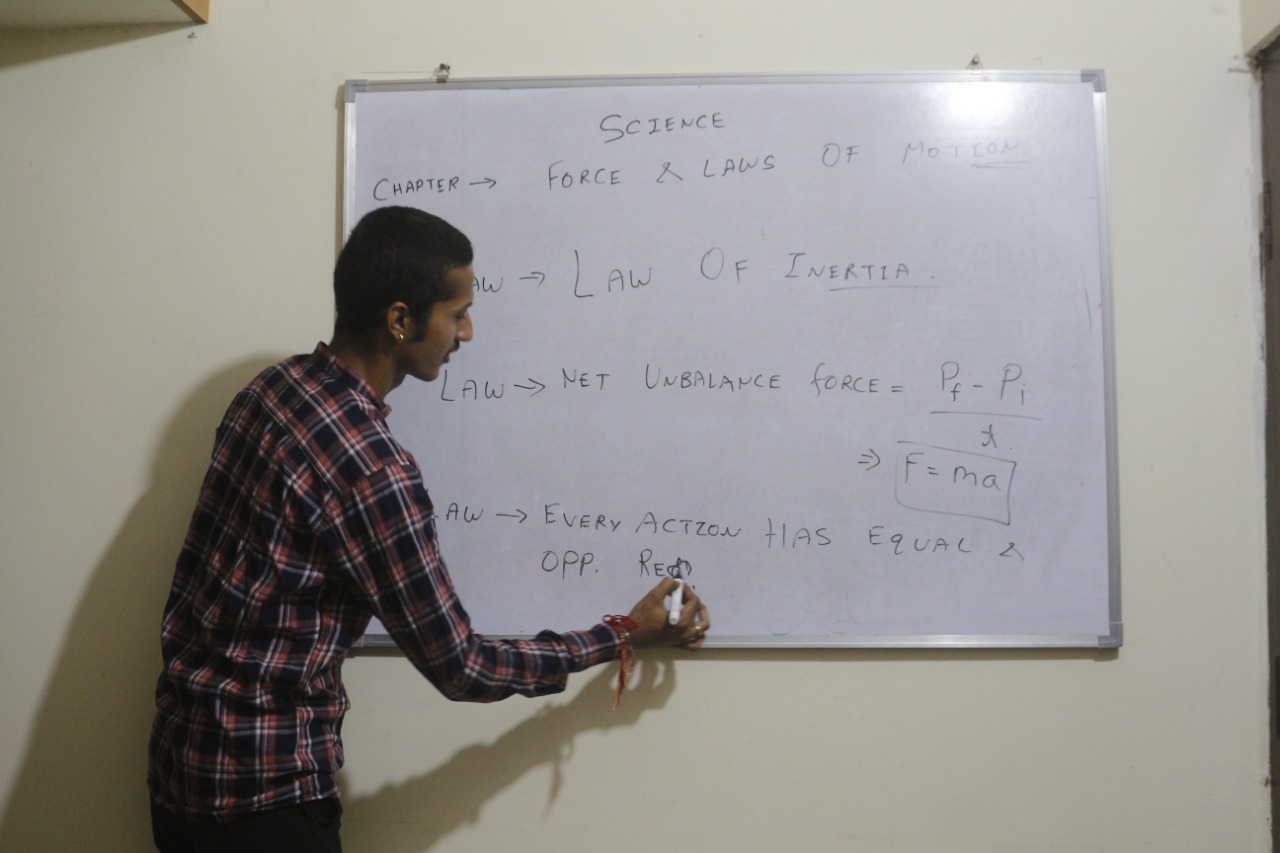 SCIENCE
CHAPTER → FORCE & LAWS OF MOTION
AW → LAW OF INERTIA.
LAW → NET UNBALANCE FORCE = Pf - Pi
t.
⇒ F = ma
LAW → EVERY ACTION HAS EQUAL &
OPP. REA